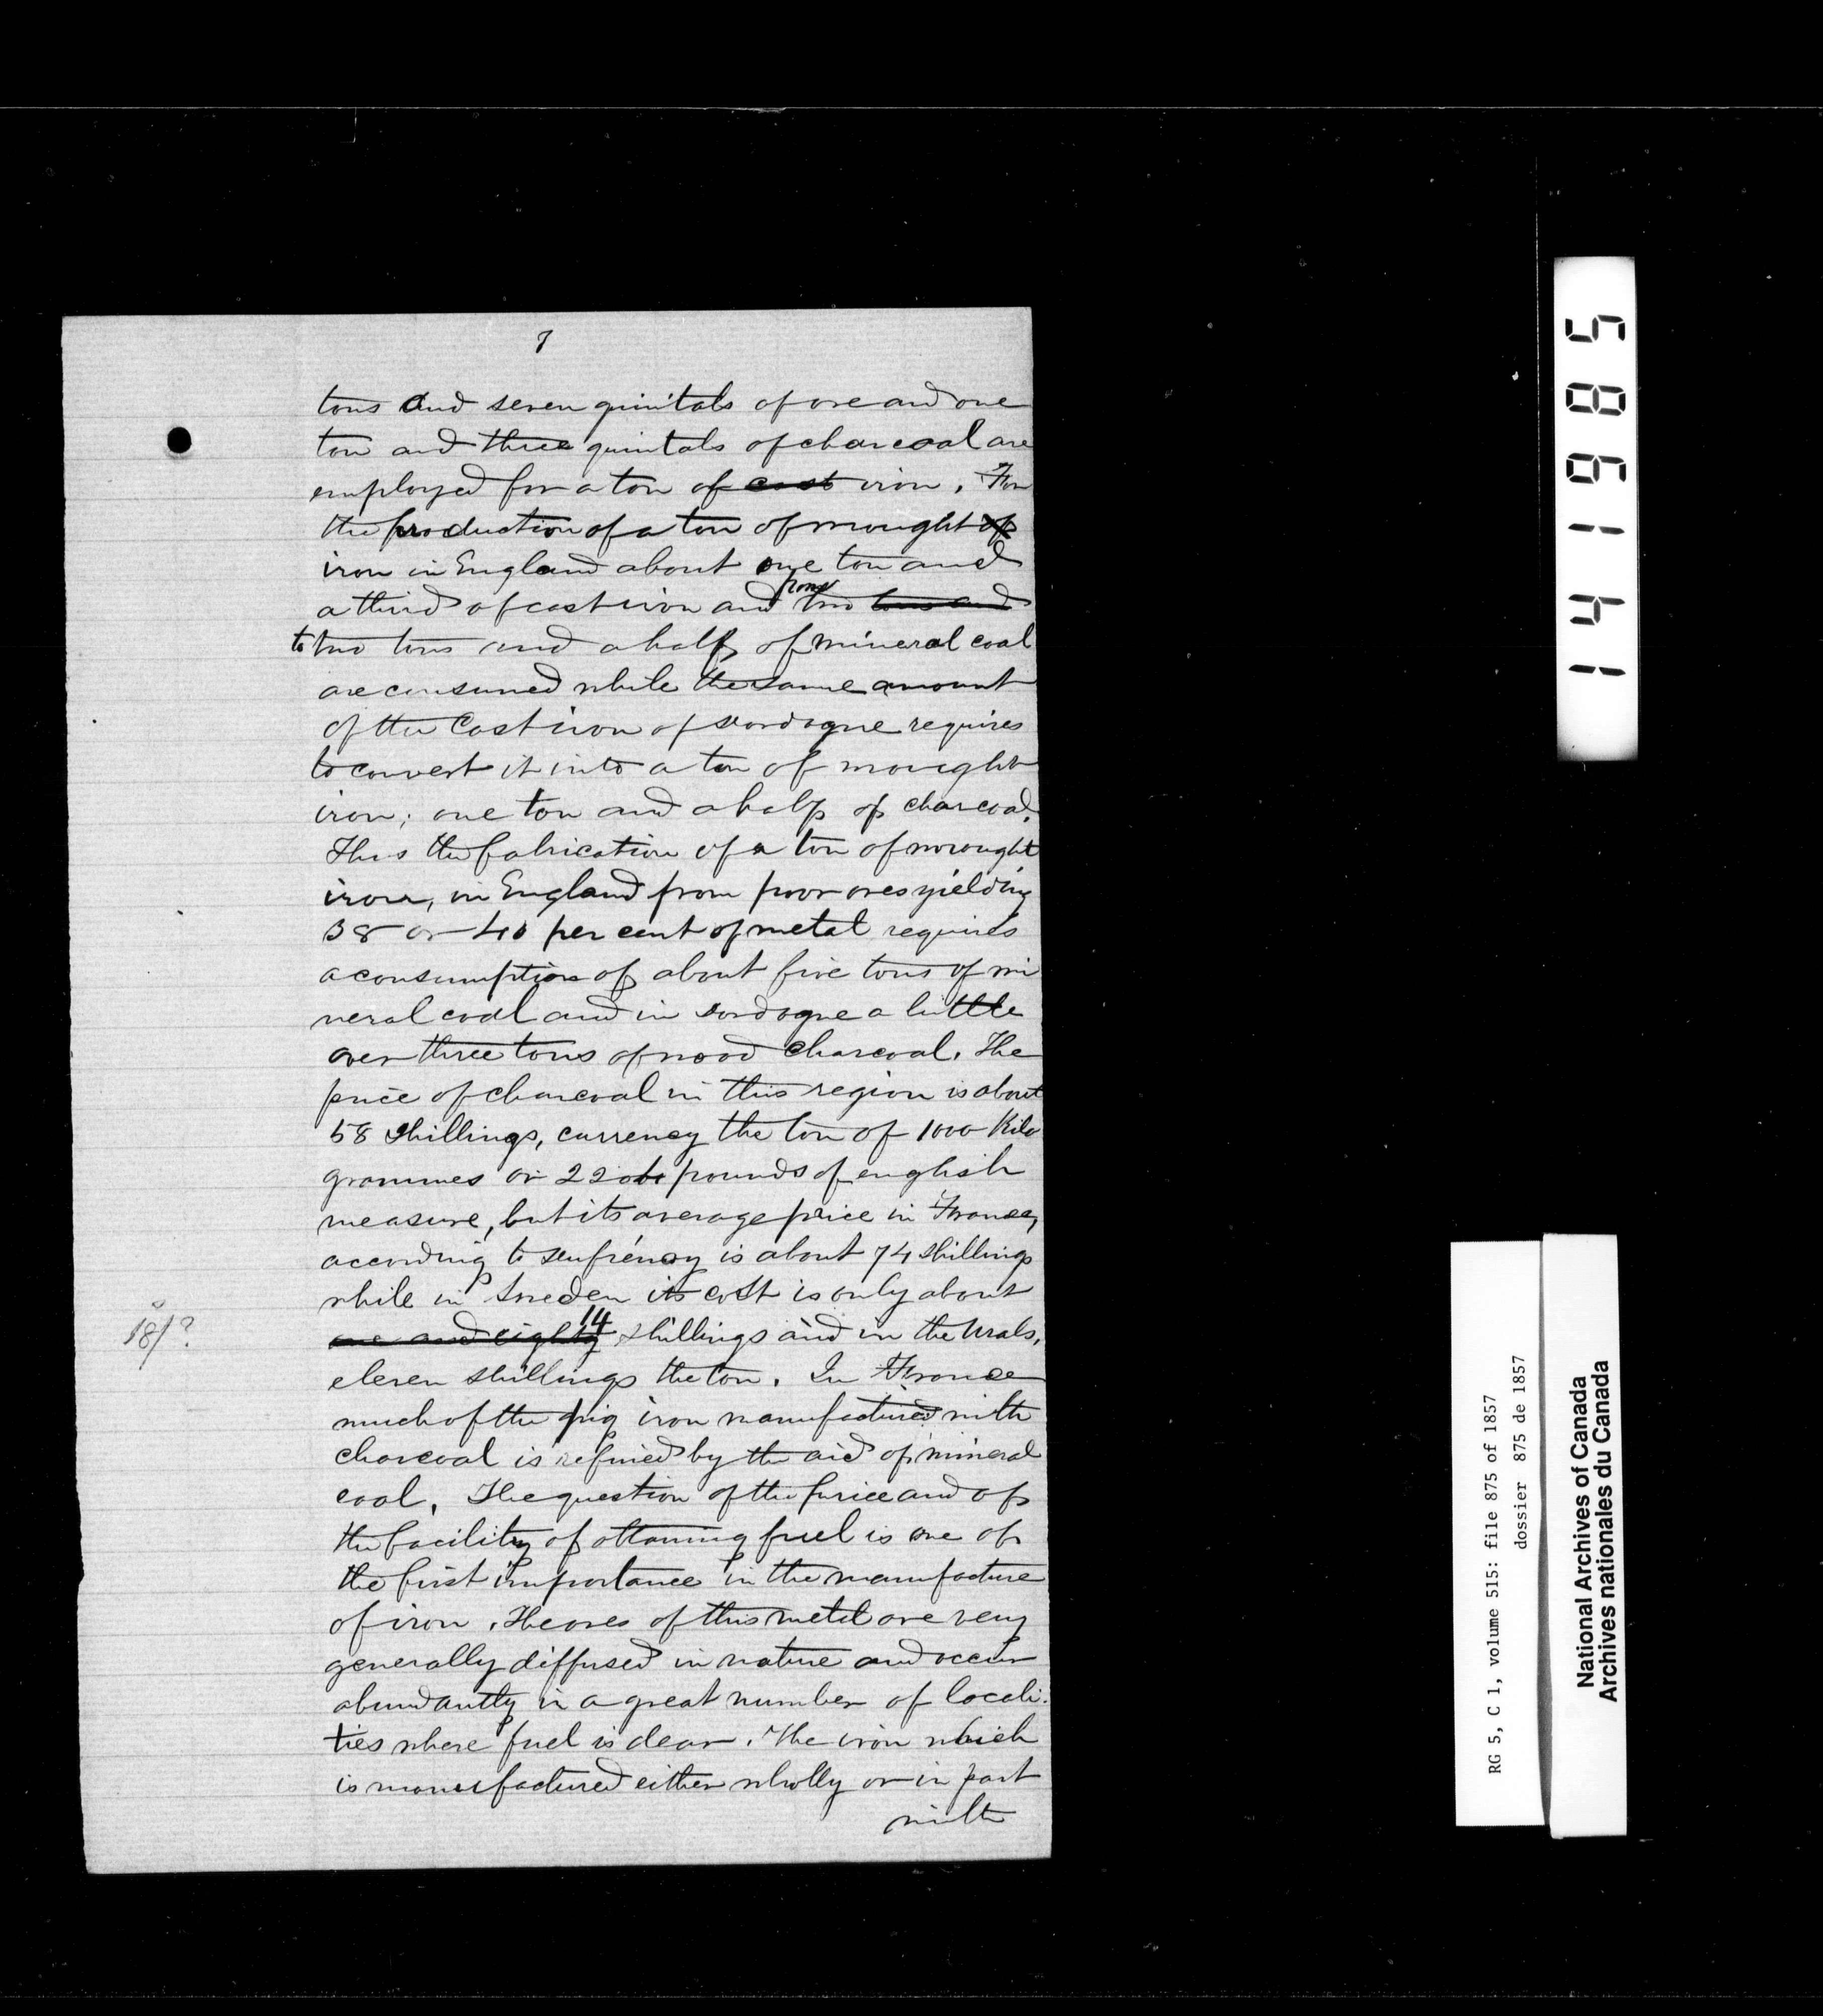 7
tons and seven quintals of ore and one
ton and three quintals of charcoal are
employed for a ton of cast iron. For
the production of a ton of wrought of
iron in England about one ton and
a third of cast iron and from two tons and
to two tons and a half of mineral coal
are consumed while the same amount
of the Cast iron of Dordogne requires
to convert it into a ton of wrought
iron; one ton and a half of charcoal.
Thus the fabrication of a ton of wrought
iron, in England from poor ores yielding
38 or 40 per cent of metal requires
a consumption of about five tons of mi
neral coal and in Dordogne a little
over three tons of wood charcoal. The
price of charcoal in this region is about
58 shillings, currency the ton of 1000 Kilo
grammes or pounds of english
measure, but its average price in France,
according to Dufrénoy is about 74 shillings
while in Sweden its cost is only about
18/?
one and eighty 14 shillings and in the Urals,
eleven shillings the ton. In France
much of the pig iron manufactured with
charcoal is refined by the aid of mineral
coal. The question of the price and of
the facility of obtaining fuel is one of
the first importance in the manufacture
of iron. The ores of this metal are very
generally diffused in nature and occur
abundantly in a great number of locali-
ties where fuel is dear. The iron which
is manufactured either wholly or in part
with
141985
RG 5, C 1, volume 515: file 875 of 1857
dossier 875 de 1857
National Archives of Canada
Archives nationales du Canada